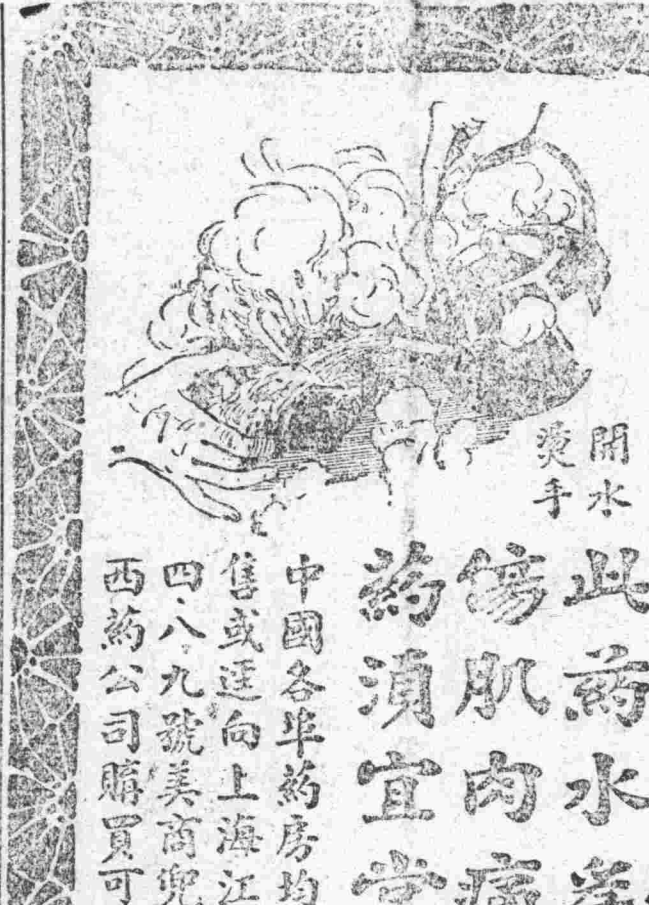 開水
燙手
此藥水
傷肌肉
藥須宜常
中國各埠藥房均
售或逕向上海江
四八九號美商兜
西藥公司購買可